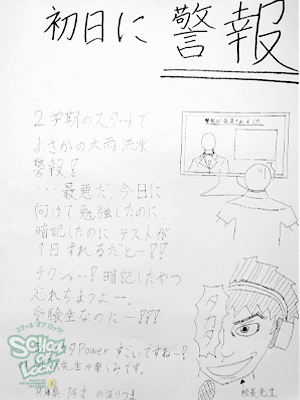 初日に 警報
2学期のスタートで
まさかの大雨洪水
警報!
…最悪だ、今日に
向けて勉強したのに、
暗記したのに テストが
1日ずれるだと―?!
チクショー!暗記したやつ
忘れちまうよー。
受験生なのにー!!!
Power すごいですねー?
先生が楽しみです。
兵庫県
のばりうま
校長先生
スクール オブ ロック!
School
of
Lock!